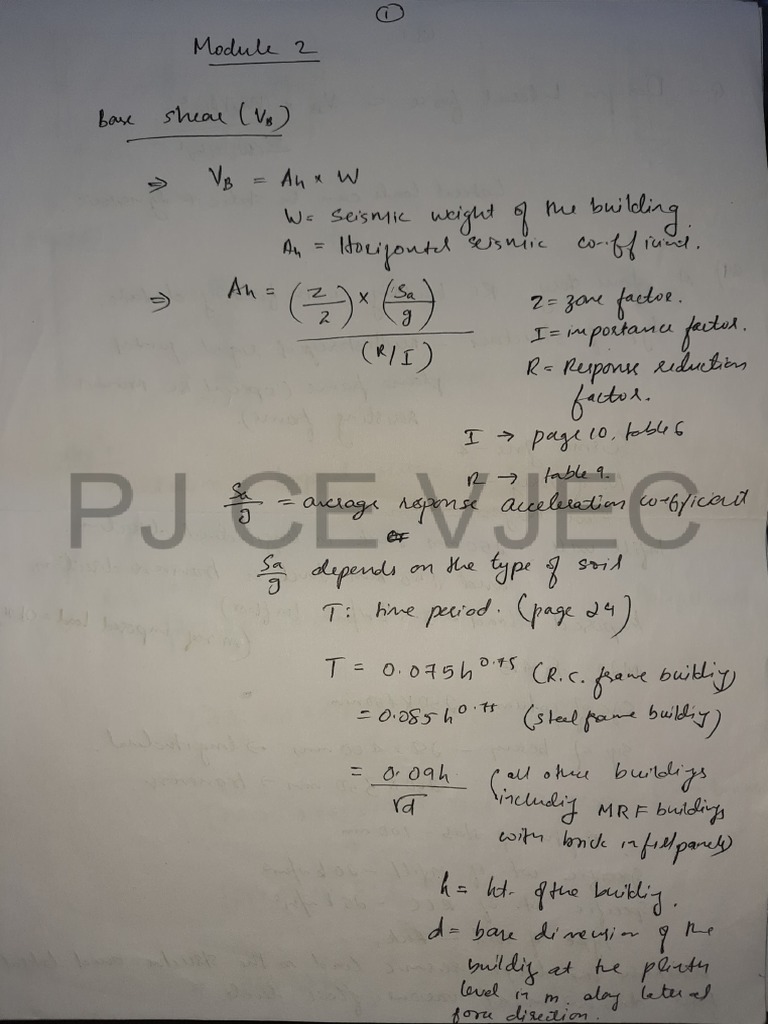 1
Module 2
Base shear (VB)
⇒ VB = Ah × W
W = Seismic weight of the building.
Ah = Horizontal seismic co-efficient.
⇒ Ah = (Z/2) × (Sa/g) / (R/I)
Z = zone factor.
I = importance factor.
R = Response reduction
factor.
I → page 10, table 6
R → table 9.
PJ CE VJEC
Sa/g = average response acceleration coefficient
Sa/g depends on the type of soil
T: time period. (page 24)
T = 0.075h^0.75 (R.C. frame building)
= 0.085h^0.75 (steel frame building)
= 0.09h/√d (all other buildings
including MRF buildings
with brick infill panels)
h = ht. of the building.
d = base dimension of the
building at the plinth
level in m. along lateral
force direction.